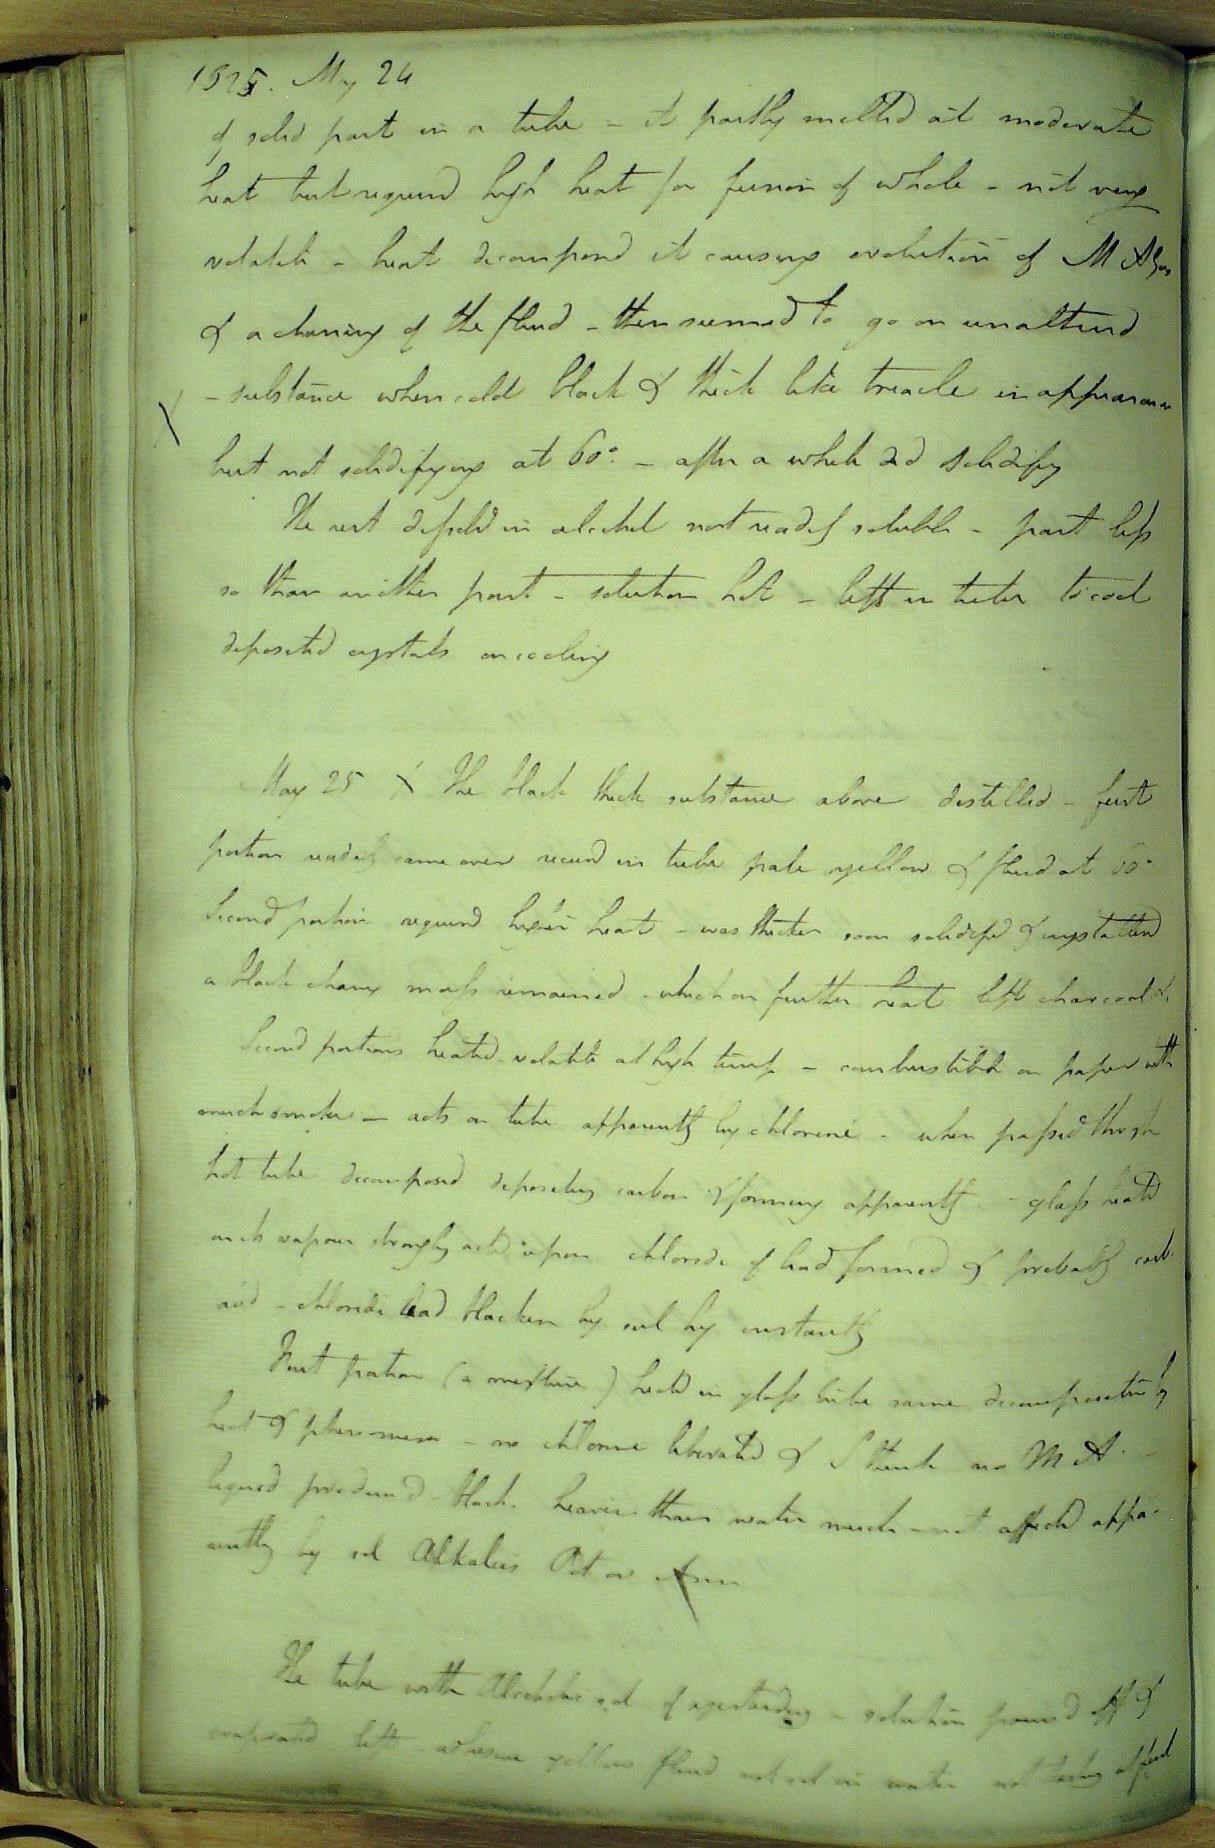 1825. May 24
of solid part in a tube - it partly melted at moderate
heat but required high heat for fusion of whole - not very
volatile - heat decomposed it causing evolution of M A gas
& a charring of the fluid - then seemed to go on unaltered
X - substance when cold black & thick like treacle in appearance
but not solidifying at 60°. - after a while did solidify
The rest dissolvd in alcohol not readily soluble - part less
so than another part - solution hot - left in tube to cool
deposited crystals on cooling
May 25 X The black thick substance above distilled - first
portion readily came over recievd in tube pale yellow & fluid at 60°
Second portion required higher heat - was thicker soon solidified & crystallised
a black charry mass remained - which on further heat left charcoal &c
Second portions heated volatile at high temp - combustible on paper with
much smoke - acts on tube apparently by chlorine - when passed through
hot tube decomposed depositing carbon & forming apparently - glass heated
in its vapour strongly acted upon chloride of lead formed & probably carb
acid - chloride lead blacken by sul hy instantly
First portion (a mixture) heated in glass tube same decomposition by
heat & phenomena - no chlorine liberated & I think no M A -
liquid produced - black heavier than water much - not affected appa-
rently by sol Alkalies Pot or Amm
The tube with Alcoholic sol of yesterday - solution poured off &
evaporated left adhesive yellow fluid not sol in water not being